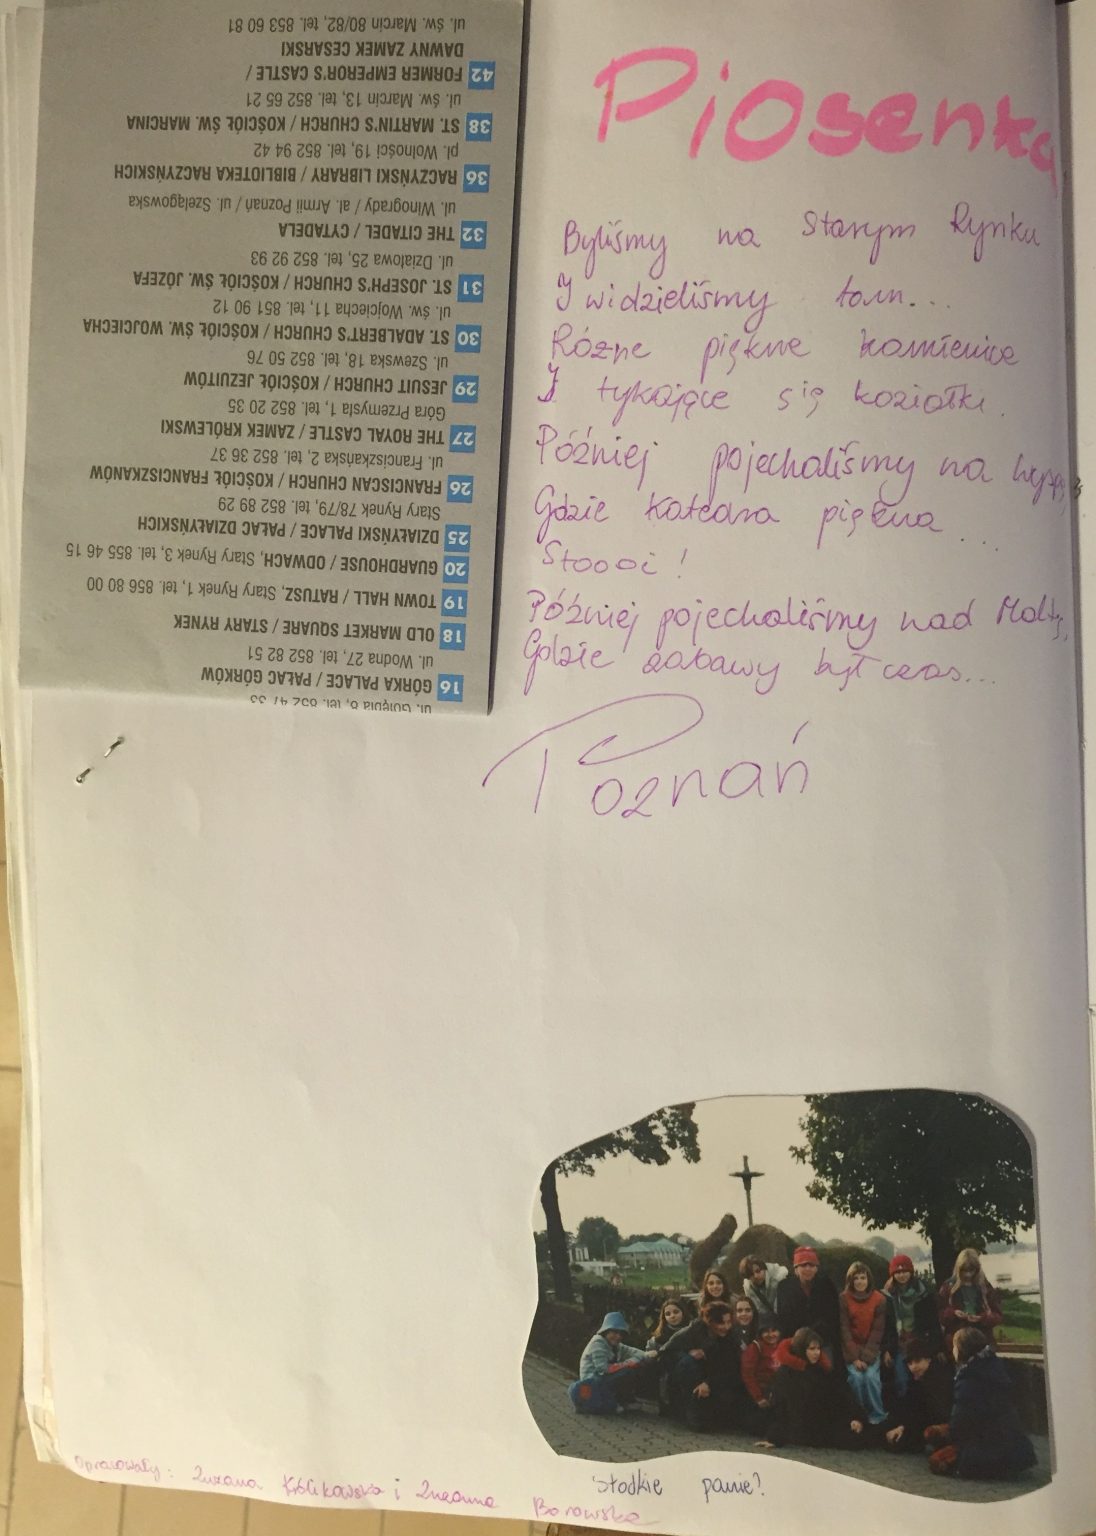 16 GÓRKA PALACE / PAŁAC GÓRKÓW
ul. Wodna 27, tel. 852 82 51
18 OLD MARKET SQUARE / STARY RYNEK
19 TOWN HALL / RATUSZ, Stary Rynek 1, tel. 856 80 00
20 GUARDHOUSE / ODWACH, Stary Rynek 3, tel. 855 46 15
25 DZIAŁYŃSKI PALACE / PAŁAC DZIAŁYŃSKICH
Stary Rynek 78/79, tel. 852 89 29
26 FRANCISCAN CHURCH / KOŚCIÓŁ FRANCISZKANÓW
ul. Franciszkańska 2, tel. 852 36 37
27 THE ROYAL CASTLE / ZAMEK KRÓLEWSKI
Góra Przemysła 1, tel. 852 20 35
29 JESUIT CHURCH / KOŚCIÓŁ JEZUITÓW
ul. Szewska 18, tel. 852 50 76
30 ST. ADALBERT'S CHURCH / KOŚCIÓŁ ŚW. WOJCIECHA
ul. św. Wojciecha 11, tel. 851 90 12
31 ST. JOSEPH'S CHURCH / KOŚCIÓŁ ŚW. JÓZEFA
ul. Działowa 25, tel. 852 92 93
32 THE CITADEL / CYTADELA
ul. Winogrady / al. Armii Poznań / ul. Szelągowska
36 RACZYŃSKI LIBRARY / BIBLIOTEKA RACZYŃSKICH
pl. Wolności 19, tel. 852 94 42
38 ST. MARTIN'S CHURCH / KOŚCIÓŁ ŚW. MARCINA
ul. św. Marcin 13, tel. 852 65 21
42 FORMER EMPEROR'S CASTLE /
DAWNY ZAMEK CESARSKI
ul. św. Marcin 80/82, tel. 853 60 81
Piosenka
Byliśmy na Starym Rynku
I widzieliśmy tam...
Różne piękne kamienice
I tykające się koziołki.
Później pojechaliśmy na wyspę,
Gdzie Katedra piękna ...
Stoooi !
Później pojechaliśmy nad Maltę,
Gdzie zabawy był czas...
Poznań
Słodkie panie?
Opracowały: Zuzana Królikowska i Zuzanna Borowska